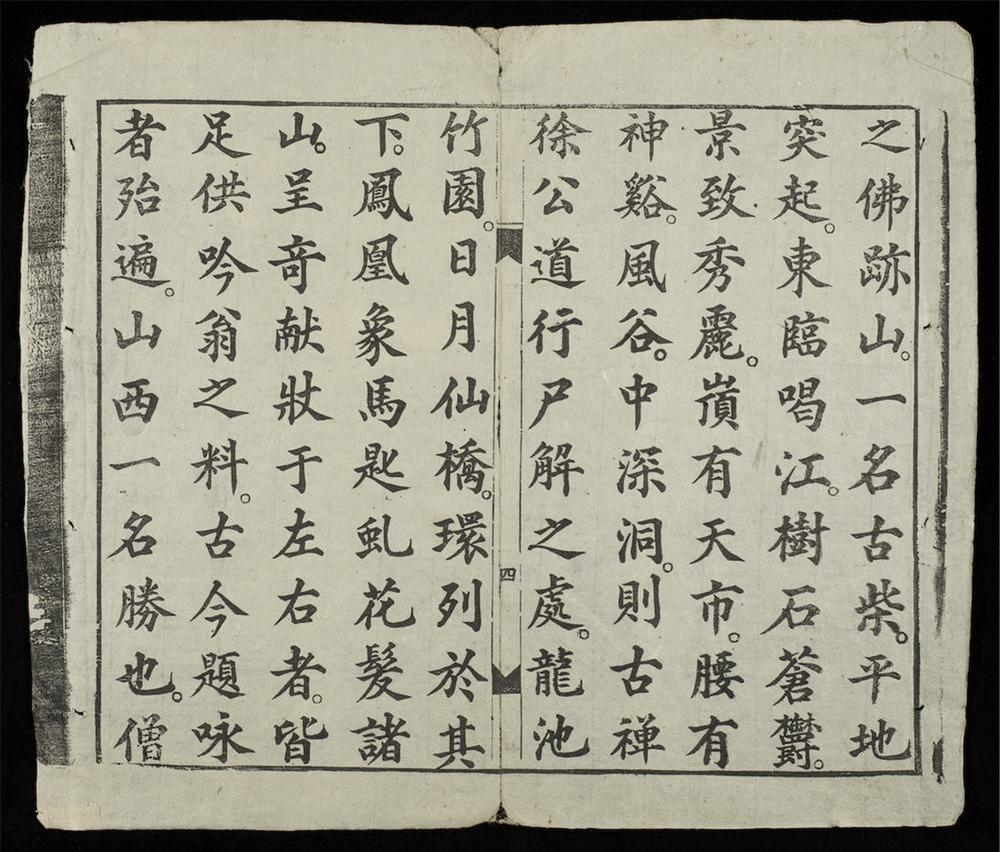 之佛跡山。一名古柴。平地
突起。東臨喝江。樹石蒼欝。
景致秀麗。嵿有天市。腰有
神谿。風谷。中深洞。則古禅
徐公道行尸解之處。龍池
四
竹園。日月仙橋。環列於其
下。鳳凰象馬匙虬花髮諸
山。呈奇献狀于左右者。皆
足供吟翁之料。古今題咏
者殆遍。山西一名勝也。僧